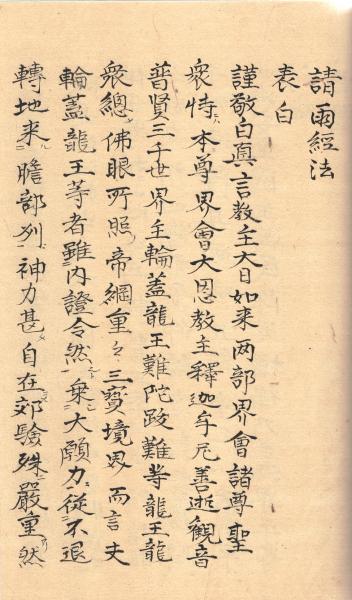 請雨經法
表白
謹敬白真言教主大日如来两部界會諸尊聖
衆特本尊界會大恩教主釋迦牟尼善逝觀音
普賢三千世界主輪蓋龍王難陀跋難等龍王龍
衆總佛眼所照帝綱重々三寳境界而言夫
輪蓋龍王等者雖内證令然乗大願力従不退
轉地来瞻部列神力甚自在郊驗殊嚴重然